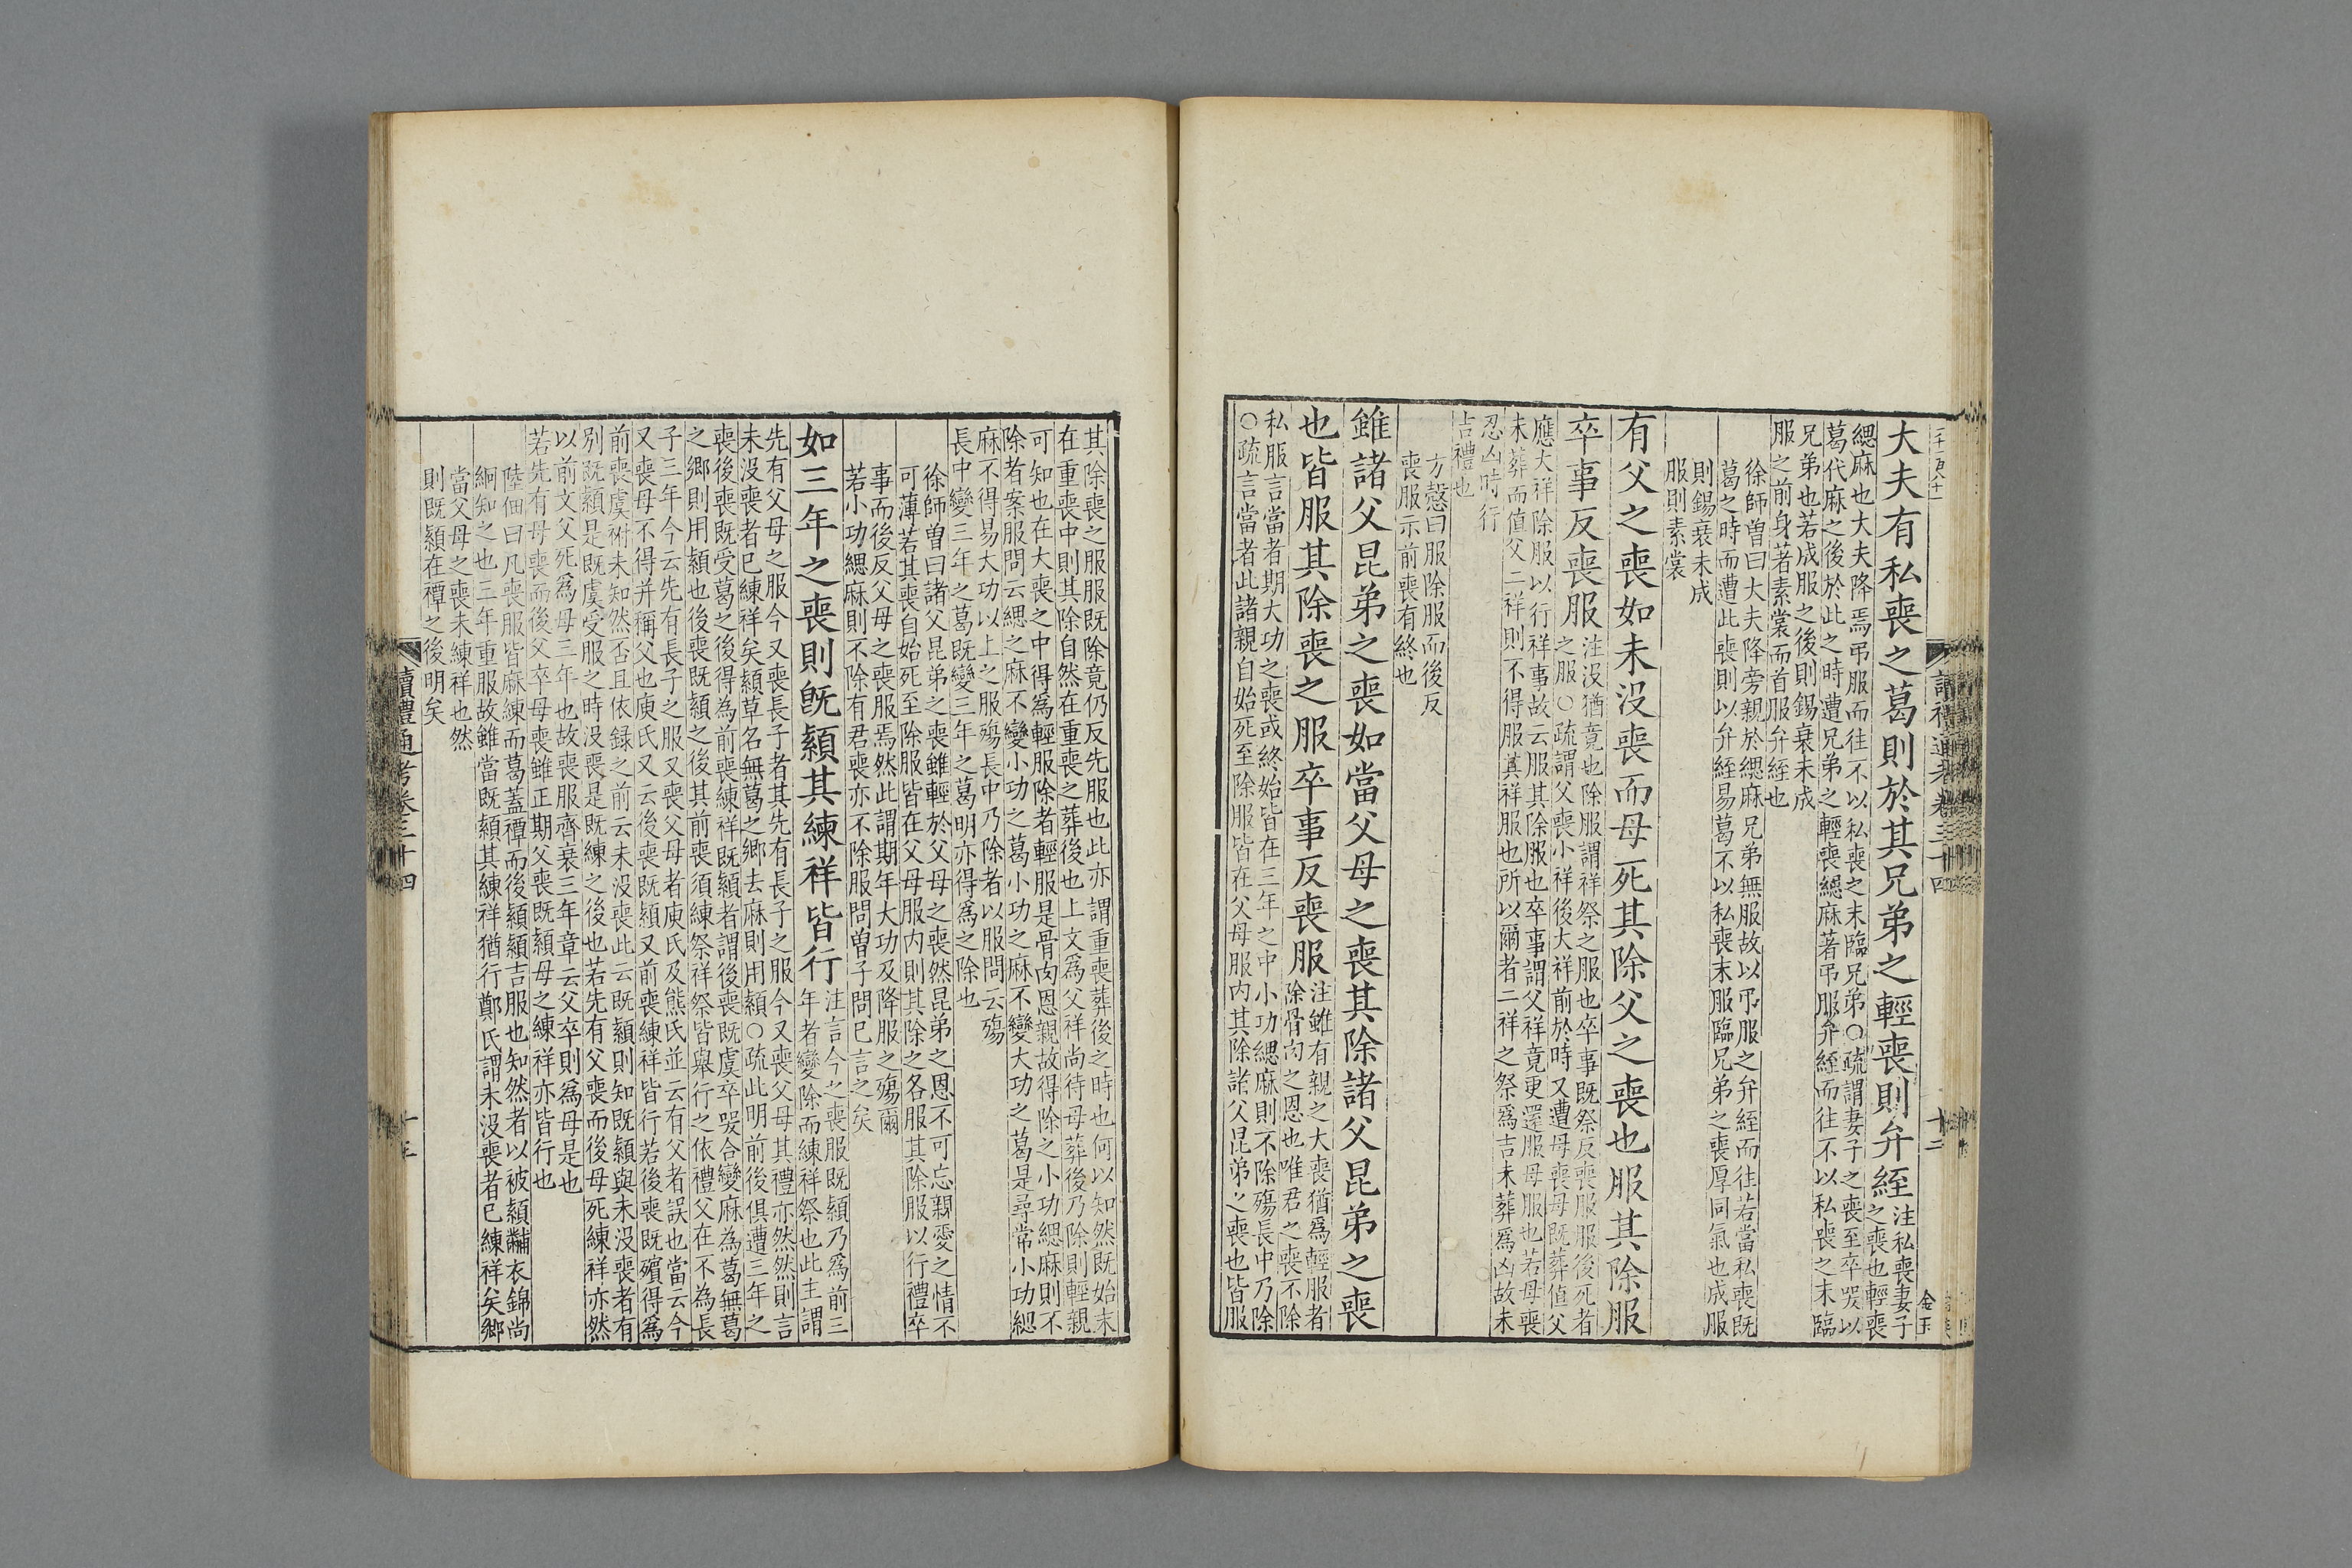 大夫有私喪之葛則於其兄弟之輕喪則弁絰注私喪妻子
之喪也輕喪
緦麻也大夫降焉弔服而往不以私喪之末臨兄弟○疏謂妻子之喪至卒哭以
葛代麻之後於此之時遭兄弟之輕喪緦麻著弔服弁絰而往不以私喪之末臨
兄弟也若成服之後則錫衰未成
服之前身著素裳而首服弁絰也
徐師曾曰大夫降旁親於緦麻兄弟無服故以弔服之弁絰而往若當私喪既
葛之時而遭此喪則以弁絰易葛不以私喪末服臨兄弟之喪厚同氣也成服
則錫衰未成
服則素裳
有父之喪如未没喪而母死其除父之喪也服其除服
卒事反喪服注没猶竟也除服謂祥祭之服也卒事既祭反喪服服後死者
之服○疏謂父喪小祥後大祥前於時又遭母喪母既葬值父
應大祥除服以行祥事故云服其除服也卒事謂父祥竟更還服母服也若母喪
未葬而值父二祥則不得服其祥服也所以爾者二祥之祭爲吉未葬爲凶故未
忍凶時行
吉禮也
方慤曰服除服而後反
喪服示前喪有終也
雖諸父昆弟之喪如當父母之喪其除諸父昆弟之喪
也皆服其除喪之服卒事反喪服注雖有親之大喪猶爲輕服者
除骨肉之恩也唯君之喪不除
私服言當者期大功之喪或終始皆在三年之中小功緦麻則不除殤長中乃除
○疏言當者此諸親自始死至除服皆在父母服内其除諸父昆弟之喪也皆服
其除喪之服服既除竟仍反先服也此亦謂重喪葬後之時也何以知然既始末
在重喪中則其除自然在重喪之葬後也上文爲父祥尚待母葬後乃除則輕親
可知也在大喪之中得爲輕服除者輕服是骨肉恩親故得除之小功緦麻則不
除者案服問云緦之麻不變小功之葛小功之麻不變大功之葛是尋常小功緦
麻不得易大功以上之服殤長中乃除者以服問云殤
長中變三年之葛既變三年之葛明亦得爲之除也
徐師曾曰諸父昆弟之喪雖輕於父母之喪然昆弟之恩不可忘親愛之情不
可薄若其喪自始死至除服皆在父母服内則其除之各服其除服以行禮卒
事而後反父母之喪服焉然此謂期年大功及降服之殤爾
若小功緦麻則不除有君喪亦不除服問曾子問已言之矣
如三年之喪則旣顈其練祥皆行注言今之喪服既顈乃爲前三
年者變除而練祥祭也此主謂
先有父母之服今又喪長子者其先有長子之服今又喪父母其禮亦然然則言
未没喪者已練祥矣顈草名無葛之鄉去麻則用顈○疏此明前後俱遭三年之
喪後喪既受葛之後得為前喪練祥既顈者謂後喪既虞卒哭合變麻為葛無葛
之鄉則用顈也後喪既顈之後其前喪須練祭祥祭皆舉行之依禮父在不為長
子三年今云先有長子之服又喪父母者庾氏及熊氏並云有父者誤也當云今
又喪母不得并稱父也庾氏又云後喪既顈又前喪練祥皆行若後喪既殯得爲
前喪虞祔未知然否且依録之前云未没喪此云既顈則知既顈與未没喪者有
別既顈是既虞受服之時没喪是既練之後也若先有父喪而後母死練祥亦然
以前文父死爲母三年也故喪服齊衰三年章云父卒則爲母是也
若先有母喪而後父卒母喪雖正期父喪既顈母之練祥亦皆行也
陸佃曰凡喪服皆麻練而葛蓋禫而後顈顈吉服也知然者以被顈黼衣錦尚
絅知之也三年重服故雖當既顈其練祥猶行鄭氏謂未没喪者已練祥矣鄉
當父母之喪未練祥也然
則既顈在禫之後明矣
讀禮通考卷三十四